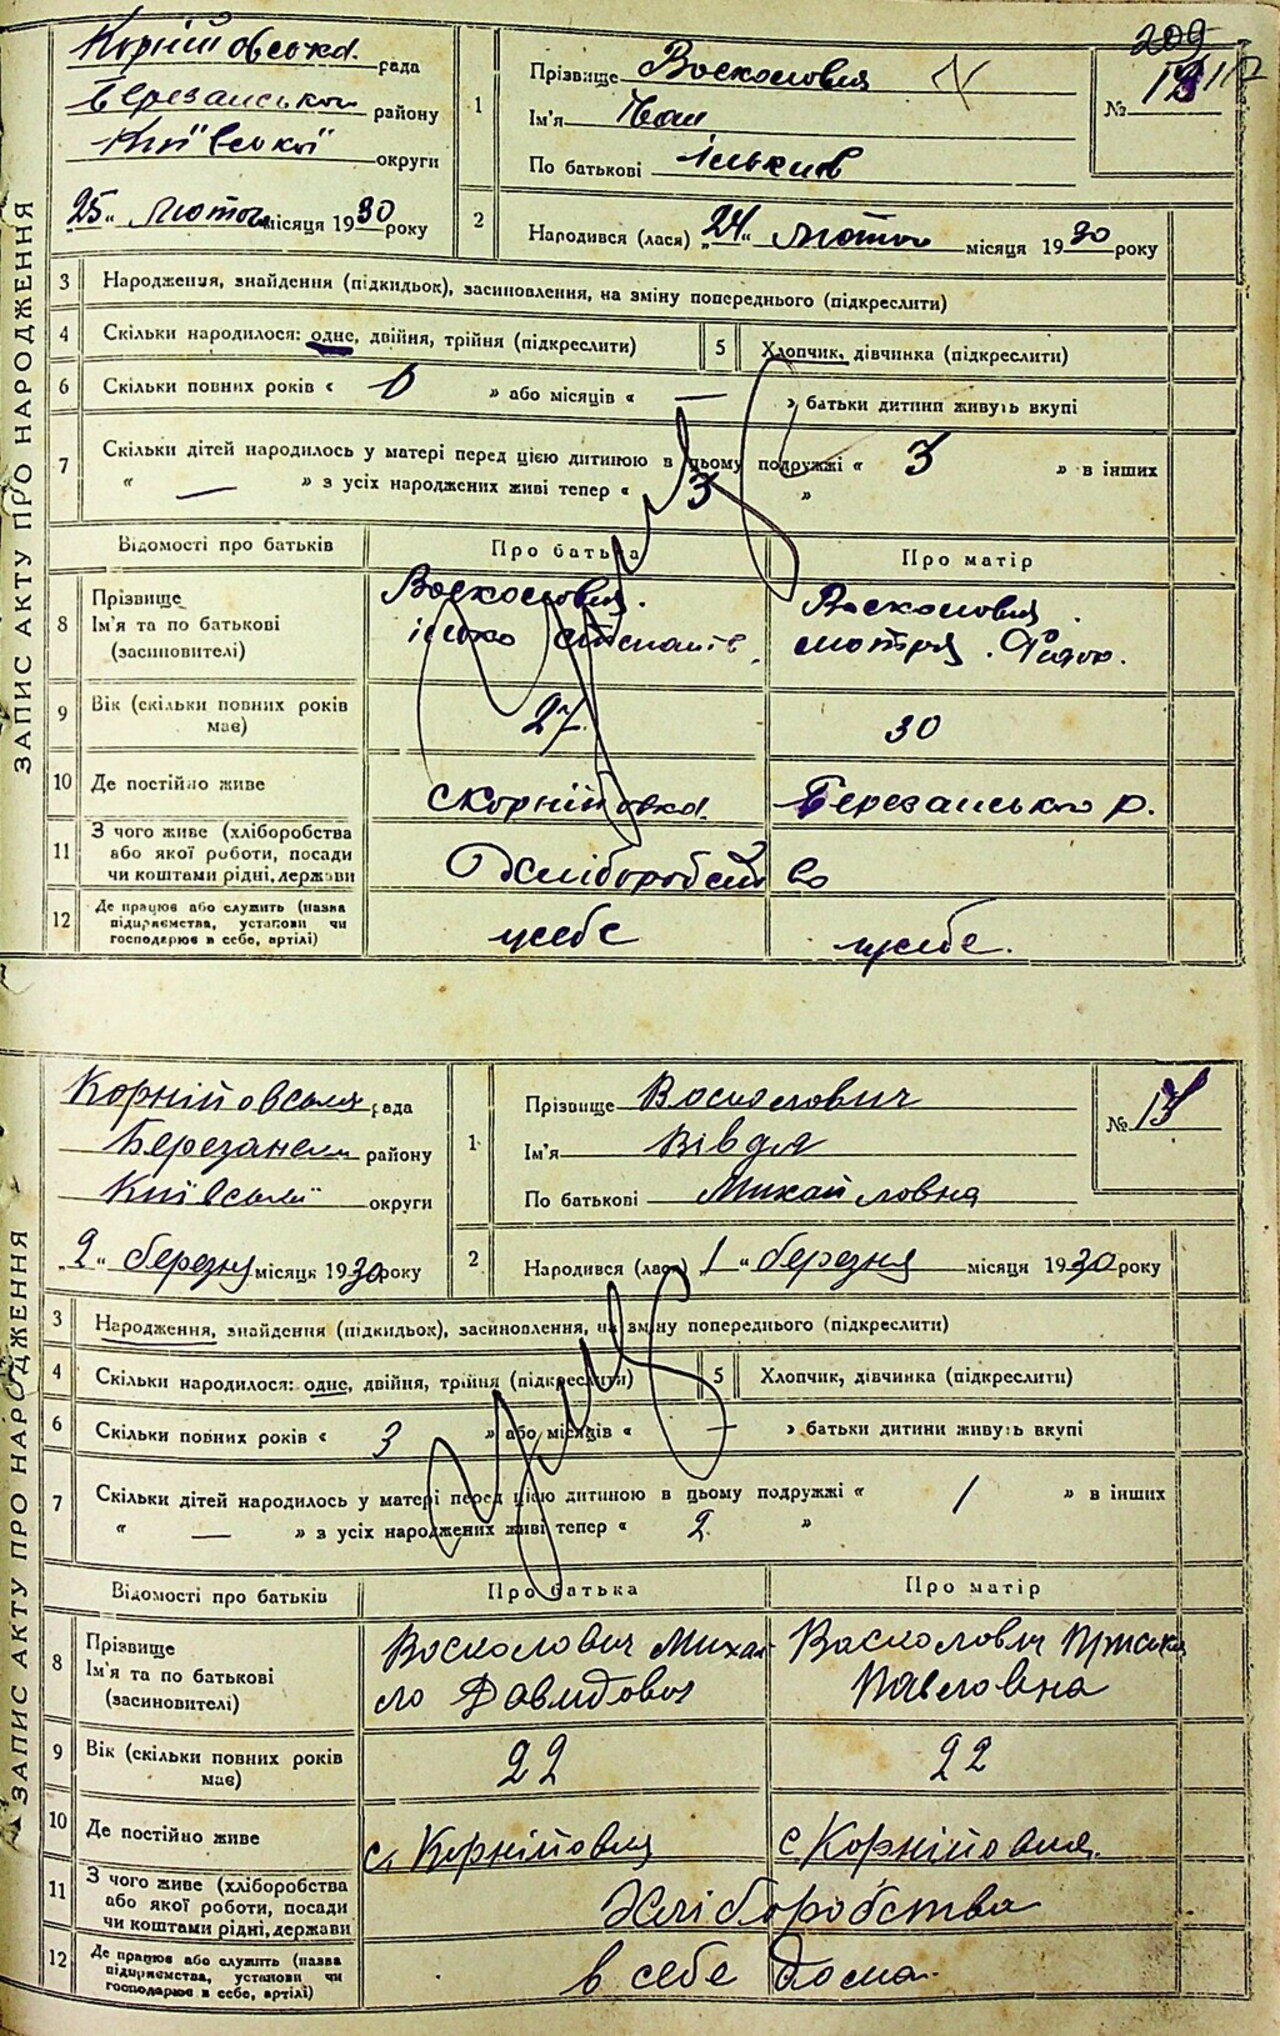 209
ЗАПИС АКТУ ПРО НАРОДЖЕННЯ
рада
Березанського району
Київської округи
25 „ лютого місяця 1930 року
1
Прізвище
Ім'я Іван
По батькові Ількив
№
2
Народився (лася) „24“ лютого місяця 1930 року
3 Народження, знайдення (підкидьок), засиновлення, на зміну попереднього (підкреслити)
4 Скільки народилося: одне, двійня, трійня (підкреслити)
5 Хлопчик, дівчинка (підкреслити)
6 Скільки повних років « 6 » або місяців « — » батьки дитини живуть вкупі
7 Скільки дітей народилось у матері перед цією дитиною в цьому подружжі « 3 » в інших
« — » з усіх народжених живі тепер « 3 »
Відомості про батьків Про батька Про матір
8 Прізвище
Ім'я та по батькові
(засиновителі)
мотря Федор.
9 Вік (скільки повних років має) 27 30
10 Де постійно живе с Корніівка Березанського р.
11 З чого живе (хліборобства або якої роботи, посади чи коштами рідні, держави Хліборобство
12 Де працює або служить (назва підприємства, установи чи господарює в себе, артілі) усебе усебе.
ЗАПИС АКТУ ПРО НАРОДЖЕННЯ
Корнійовська рада
Березанськ району
Київської округи
„2“ березня місяця 1930 року
1
Прізвище Восколович
Ім'я Вівдя
По батькові Михайловна
№ 14
2
Народився (лася) 1“ березня місяця 1930 року
3 Народження, знайдення (підкидьок), засиновлення, на зміну попереднього (підкреслити)
4 Скільки народилося: одне, двійня, трійня (підкреслити)
5 Хлопчик, дівчинка (підкреслити)
6 Скільки повних років « 3 » або місяців « — » батьки дитини живуть вкупі
7 Скільки дітей народилось у матері перед цією дитиною в цьому подружжі « 1 » в інших
« — » з усіх народжених живі тепер « 2. »
Відомості про батьків Про батька Про матір
8 Прізвище
Ім'я та по батькові
(засиновителі)
Восколович Михай Васколович
ло Давидович Павловна
9 Вік (скільки повних років має) 22 22
10 Де постійно живе с. Корнійовка с. Корнійовка.
11 З чого живе (хліборобства або якої роботи, посади чи коштами рідні, держави Хліборобства
12 Де працює або служить (назва підприємства, установи чи господарює в себе, артілі) в себе дома.